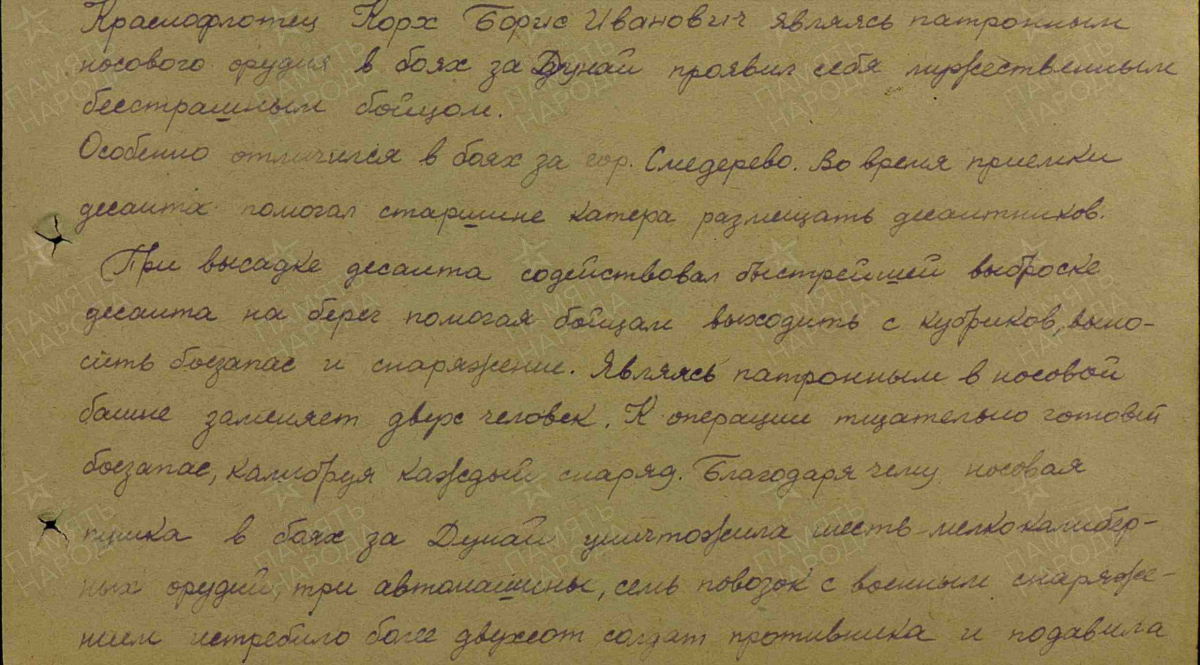 Краснофлотец Корх Борис Иванович являясь патронным
носового орудия в боях за Дунай проявил себя мужественным
бесстрашным бойцом.
Особенно отличился в боях за гор. Смедерево. Во время приемки
десанта помогал старшине катера размещать десантников.
При высадке десанта содействовал быстрейшей выброске
десанта на берег помогая бойцам выходить с кубриков, выно-
сить боезапас и снаряжение. Являясь патронным в носовой
башне заменяет двух человек. К операции тщательно готовит
боезапас, калибруя каждый снаряд. Благодаря чему носовая
пушка в боях за Дунай уничтожила шесть мелкокалибер-
ных орудий, три автомашины, семь повозок с военным снаряже-
нием истребило более двухсот солдат противника и подавила
ПАМЯТЬ НАРОДА